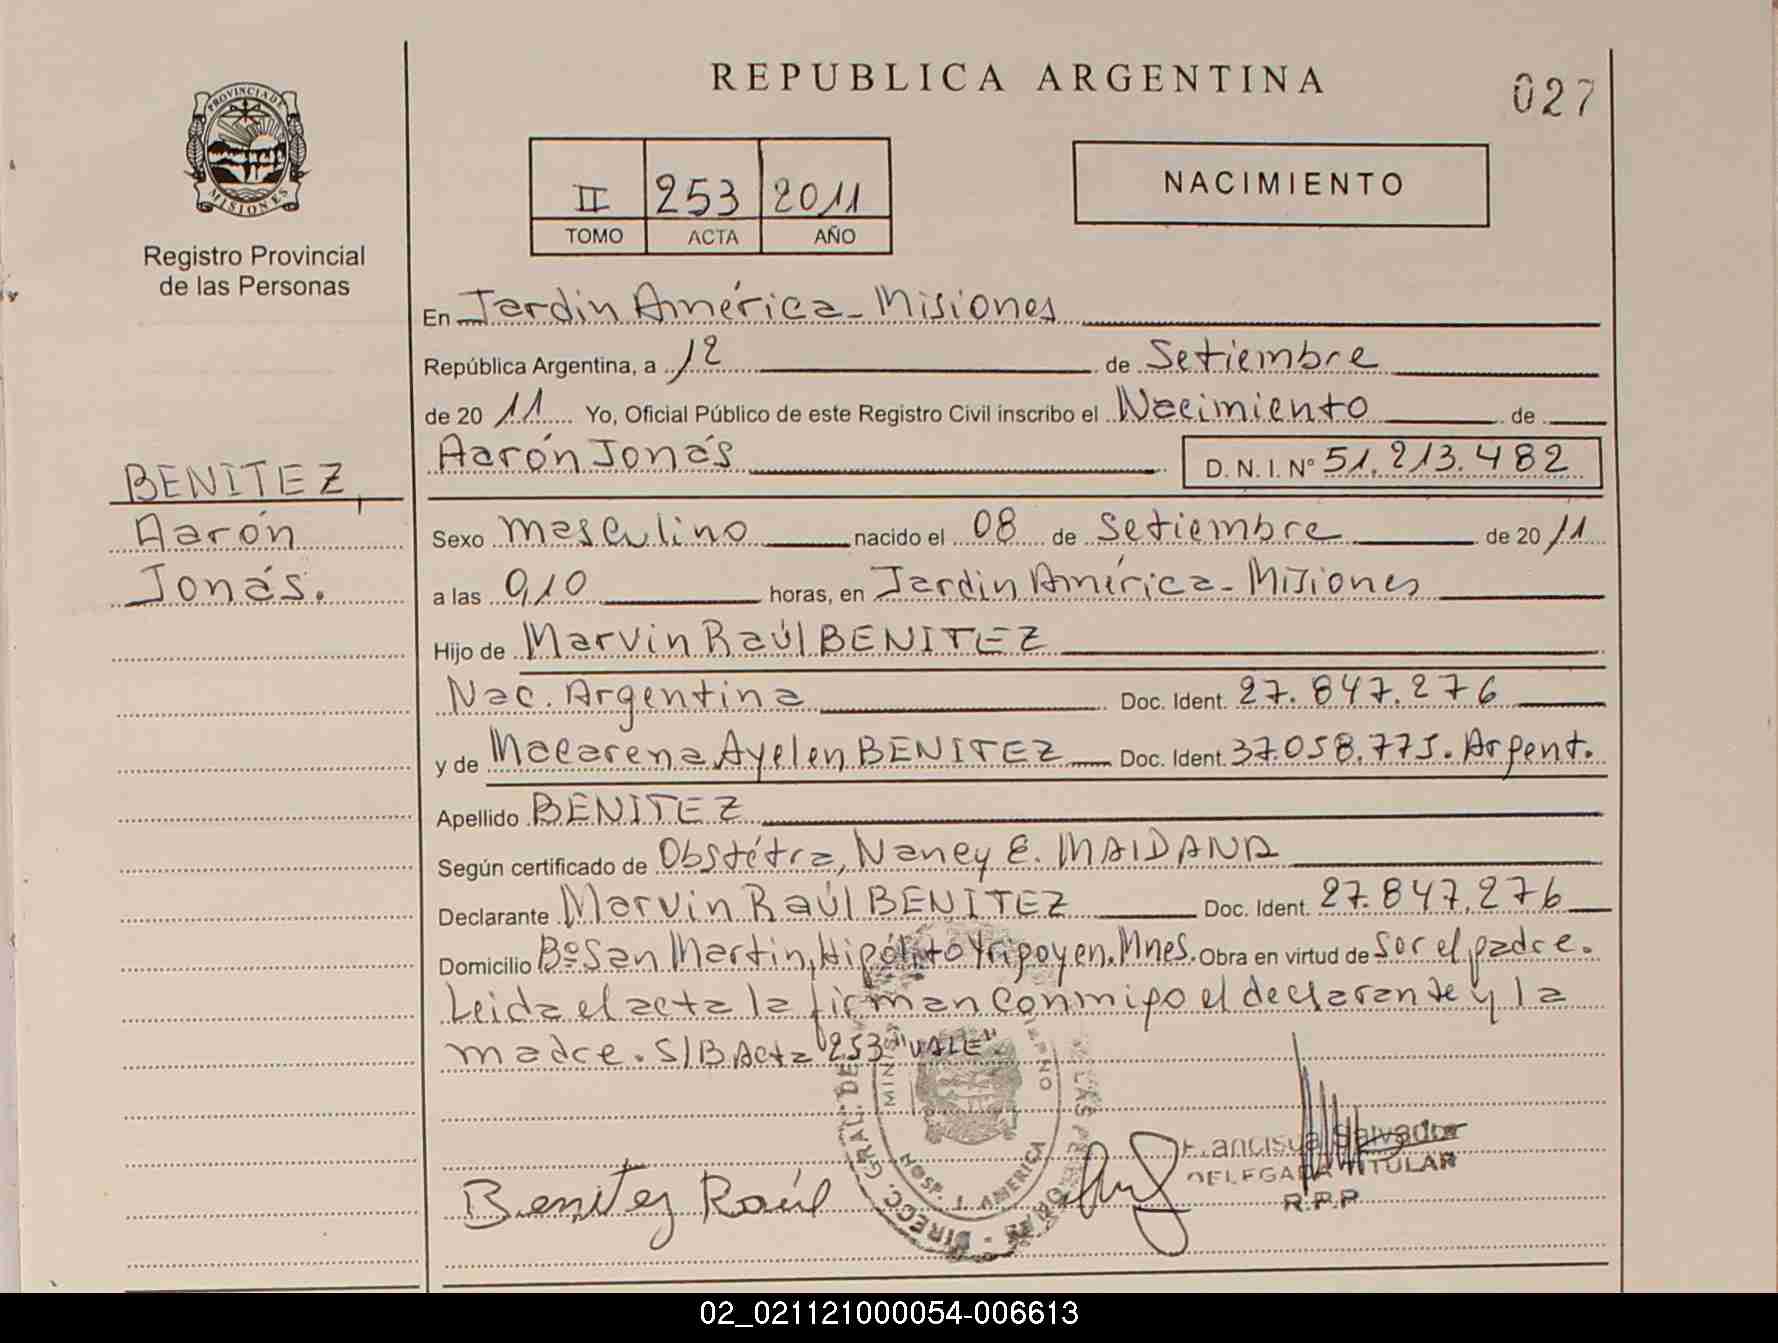 REPUBLICA ARGENTINA
027
PROVINCIA DE
MISIONES
Registro Provincial
de las Personas
II 253 2011
TOMO ACTA AÑO
NACIMIENTO
En Jardin América - Misiones
República Argentina, a 12 de Setiembre
de 20 11 Yo, Oficial Público de este Registro Civil inscribo el Nacimiento de
Aarón Jonás D. N. I. Nº 51.213.482
BENITEZ,
Aarón
Jonás.
Sexo masculino nacido el 08 de Setiembre de 20 11
a las 0,10 horas, en Jardin América - Misiones
Hijo de Marvin Raúl BENITEZ
Nac. Argentina Doc. Ident. 27.847.276
y de Macarena Ayelen BENITEZ Doc. Ident. 37.058.775. Argent.
Apellido BENITEZ
Según certificado de Obstétra, Nancy E. MAIDANA
Declarante Marvin Raúl BENITEZ Doc. Ident. 27.847.276
Domicilio Bº San Martin, Hipólito Yrigoyen. Mnes. Obra en virtud de Ser el padre.
Leida el acta la firman conmigo el declarante y la
madre. S/B Acta 253 "VALE".
DIRECC. GRAL. DE
LAS PE
HOSP. J. AMERICA
Francisca Salvador
DELEGADA TITULAR
R.P.P.
Benitez Raúl
02_021121000054-006613